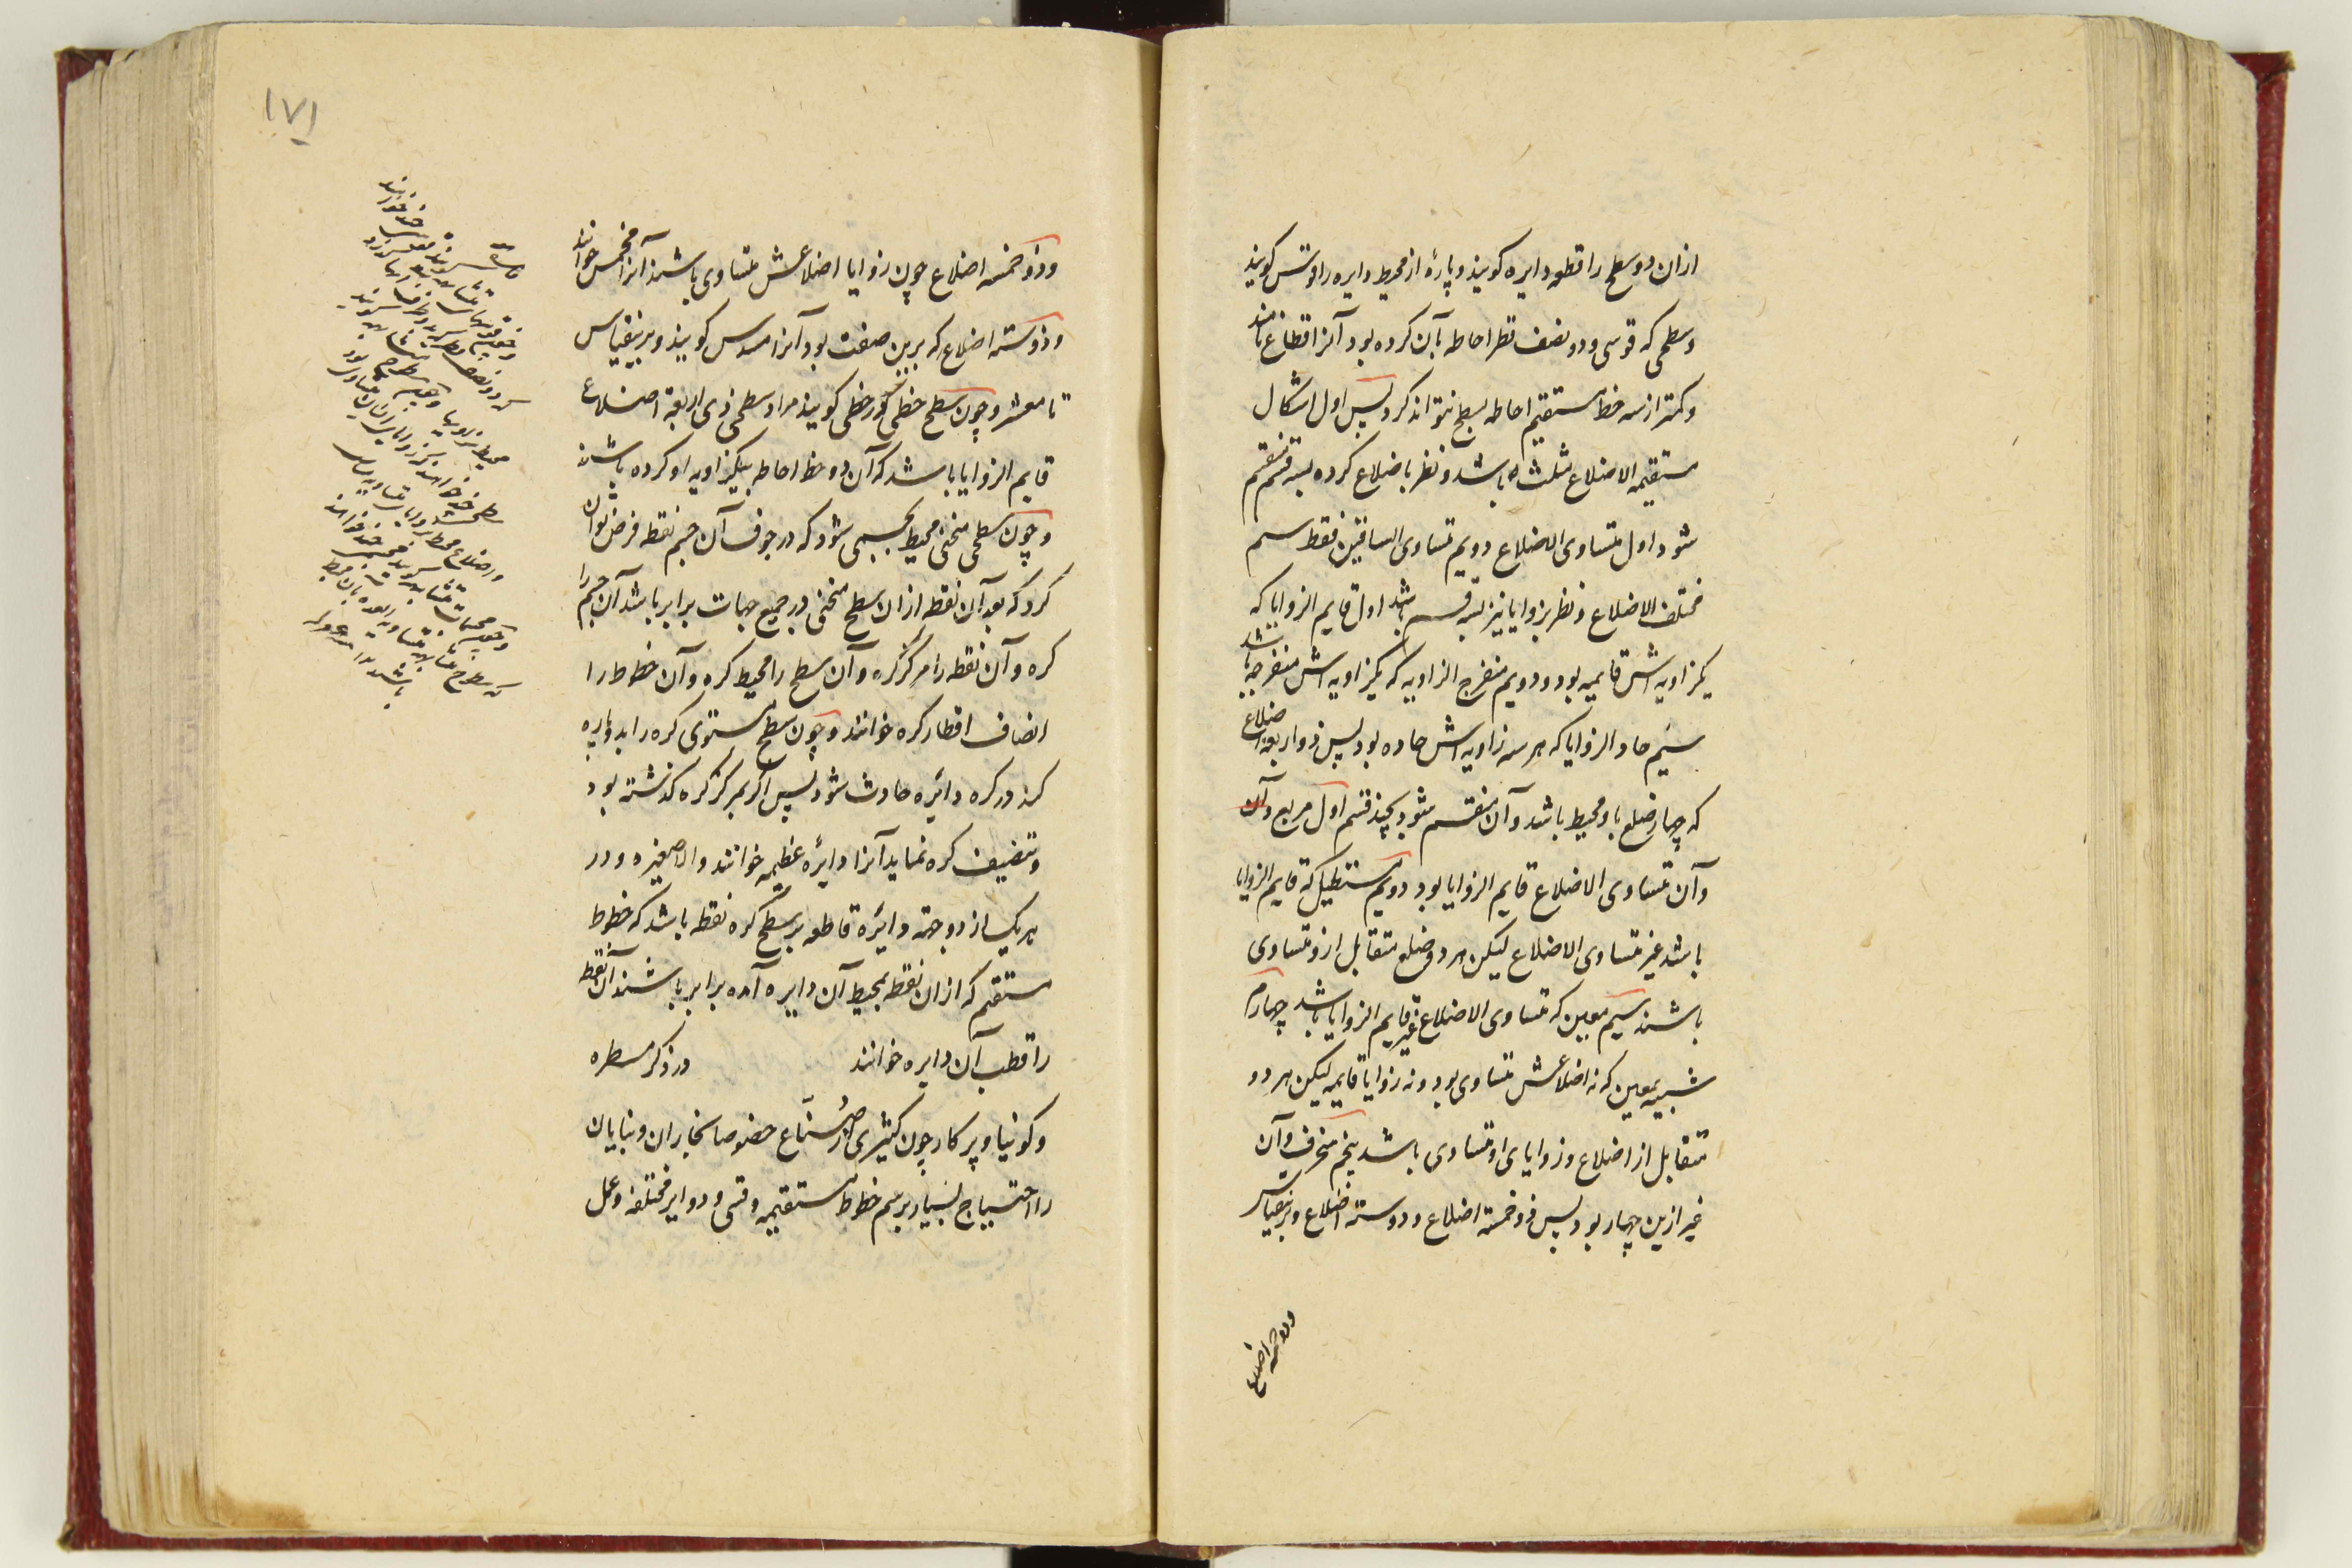 ازان دو سطح را قطعه دایره کویند و پارهٔ از محیط دایره را قوس کویند
و سطحی که قوسی و دو نصف قطر احاطه بآن کرده بود آنرا قطاع نامند
و کمتر از سه خط مستقیم احاطه بسطح نتواند کرد پس اول اشکال
مستقیمه الاضلاع مثلث باشد و نظر باضلاع کرده بسه قسم منقسم
شود اول متساوی الاضلاع دویم متساوی الساقین فقط سیم
مختلف الاضلاع و نظر بزوایا نیز بسه قسم باشد اول قایم الزوایا که
یکزاویه اش قایمه بود و دویم منفرج الزاویه که یکزاویه اش منفرجه باشد
سیم حاد الزوایا که هر سه زاویه اش حاده بود پس ذو اربعه اضلاع
که چهار ضلع باو محیط باشد و آن منقسم شود بچند قسم اول مربع و آن
و آن متساوی الاضلاع قایم الزوایا بود دویم مستطیل که قایم الزوایا
باشد غیر متساوی الاضلاع لیکن هر دو ضلع متقابل ازو متساوی
باشند سیم معین که متساوی الاضلاع غیر قایم الزوایا باشد چهارم
شبیه بمعین که نه اضلاعش متساوی بود و نه زوایا قایمه لیکن هر دو
متقابل از اضلاع و زوایای او متساوی باشد پنجم منحرف و آن
غیر ازین چهار بود پس ذو خمسة اضلاع و ذو سته اضلاع و برینقیاس
وذو خمسه اضلاع
۱۷۱
و ذو خمسه اضلاع چون زوایا اضلاعش متساوی باشند آنرا مخمس خوانند
و ذو سته اضلاع که برین صفت بود آنرا مسدس کویند و برینقیاس
تا معشر و چون سطح خطی در خطی کویند مراد سطحی ذی اربعة اضلاع
قایم الزوایا باشد که آن دو خط احاطه بیکزاویه او کرده باشند
و چون سطحی منحنی محیط بجسمی شود که در جوف آن جسم نقطه فرض توان
کرد که بعد آن نقطه ازان سطح منحنی در جمیع جهات برابر باشد آن جسم را
کره و آن نقطه را مرکز کره و آن سطح را محیط کره و آن خطوط را
انصاف اقطار کره خوانند و چون سطح مستوی کره را بدو پاره
کند در کره دائره حادث شود پس اکر بمرکز کره کذشته بود
و تنصیف کره نماید آنرا دائرهٔ عظیمه خوانند والا صغیره و در
هر یک از دو جهة دائره قاطعه بر سطح کره نقطه باشد که خطوط
مستقیم که ازان نقطه بمحیط آن دایره آمده برابر باشند آن نقطه
را قطب آن دایره خوانند در ذکر مسطره
و کونیا و پرکار چون کثیری از صناع خصوصا نجاران و بنایان
را احتیاج بسیار برسم خطوط مستقیمه و قسی و دوایر مختلفه و عمل